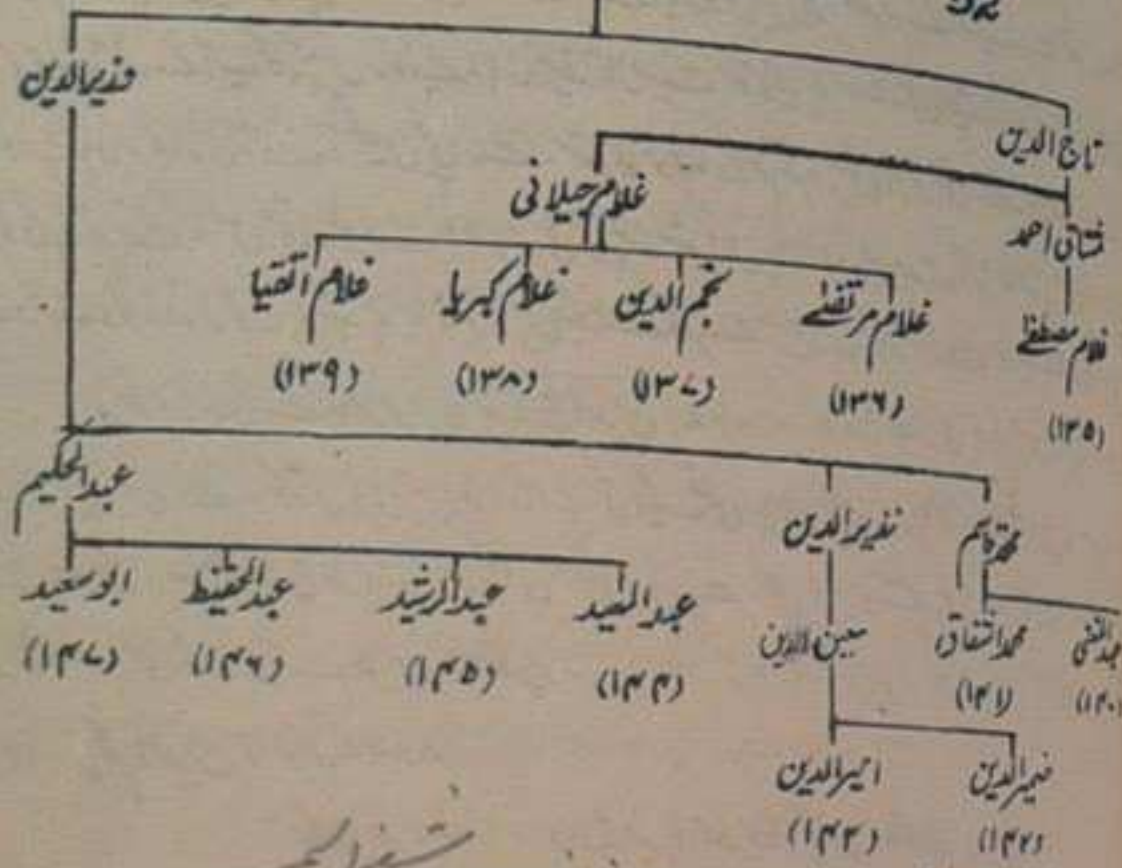 وزیرالدین
تاج الدین
غلام جیلانی
مشتاق احمد
غلام مصطفےٰ
(۱۳۵)
غلام مرتضےٰ
(۱۳۶)
نجم الدین
(۱۳۷)
غلام کبریا
(۱۳۸)
غلام اتقیا
(۱۳۹)
محمد قاسم
نذیرالدین
عبدالحکیم
(۱۴۰)
محمد اشتیاق
(۱۴۱)
معین الدین
(۱۴۲)
امیرالدین
(۱۴۳)
(۱۴۴)
عبدالرشید
(۱۴۵)
عبدالحفیظ
(۱۴۶)
ابو سعید
(۱۴۷)